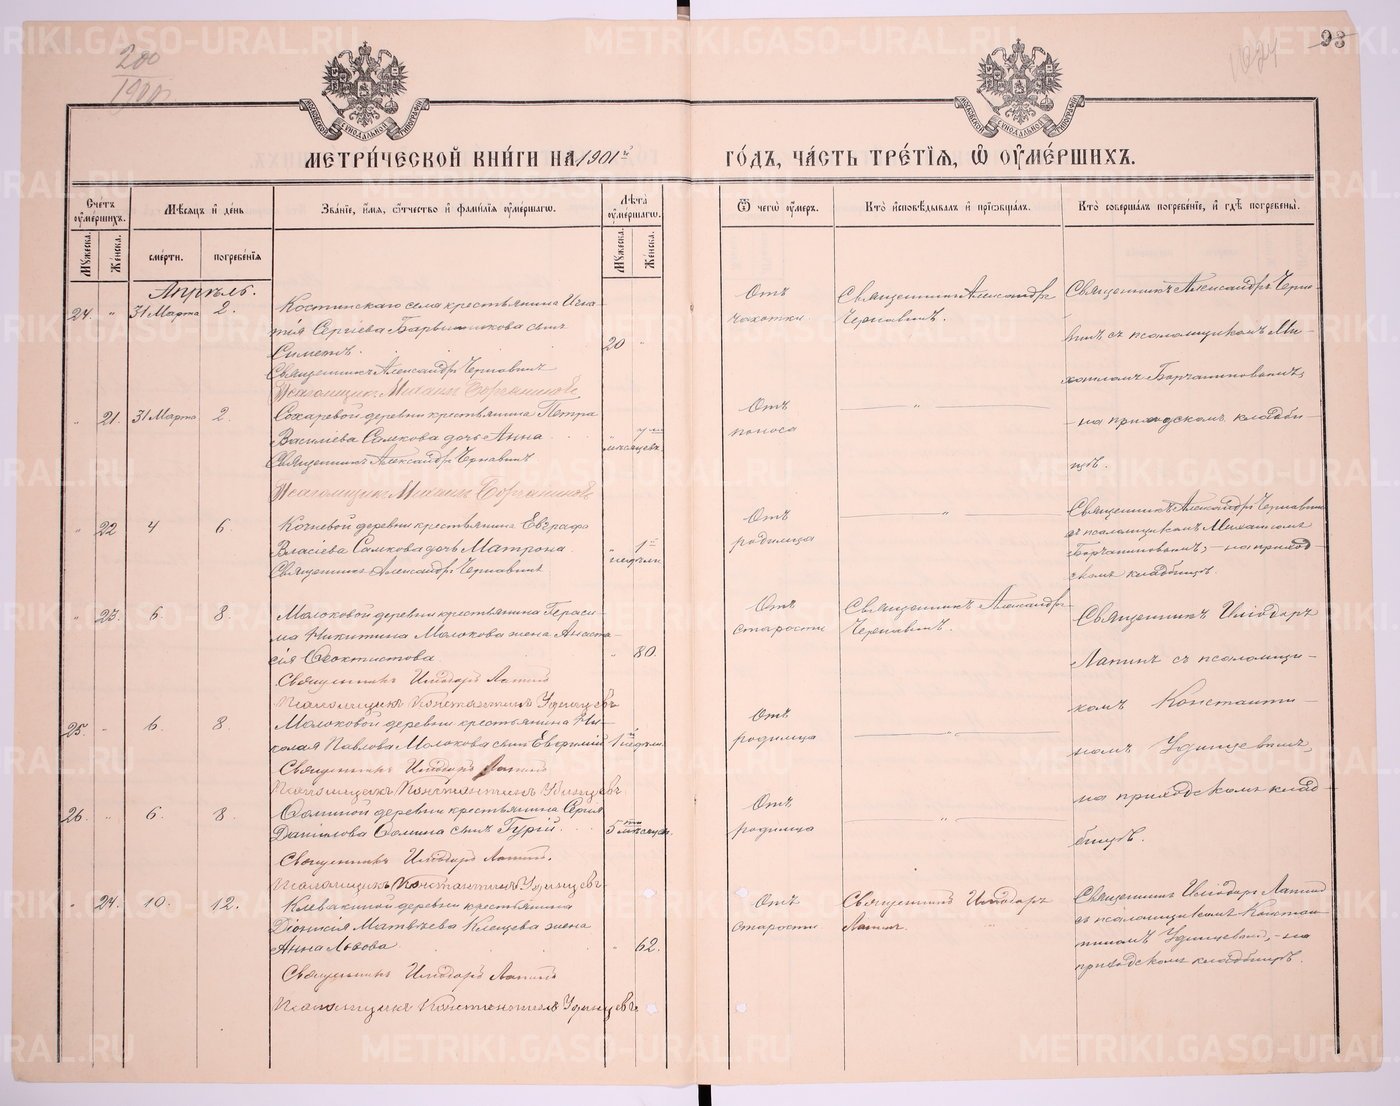 200
1900
93
МЕТРИ́ЧЕСКОЙ КНИ́ГИ НА 1901й
ГО́ДЪ, ЧА́СТЬ ТРЕ́ТІЯ, Ѡ ОУМЕ́РШИХЪ.
Сче́тъ оуме́ршихъ.
Му́жеска.
Же́нска.
Мѣсяцъ и де́нь
сме́рти.
погребе́нія
Зва́ніе, и́мя, ѻ́тчество и фами́лія оуме́ршагѡ.
Лѣта оуме́ршагѡ.
Му́жеска.
Же́нска.
Ѿ чегѡ̀ оу́меръ.
Кто̀ исповѣдывалъ и приѡбща́лъ.
Кто̀ соверша́лъ погребе́ніе, и гдѣ погребены̀.
Апрѣль.
24. " 31 Марта 2.
Костинскаго села крестьянина Игна-
тія Сергіева Барышникова сынъ
20 "
Священникъ Александръ Чернавинъ
Псаломщикъ Михаилъ
Отъ
чахотки.
Священникъ Александръ
Чернавинъ.
Священникъ Александръ Черна-
винъ съ псаломщикомъ Ми-
хаиломъ
" 21. 31 Марта 2.
Сохаревой деревни крестьянина Петра
Василіева Самкова дочь Анна
" 7
мѣсяцевъ.
Священникъ Александръ Чернавинъ
Псаломщикъ Михаилъ
Отъ
поноса
"
- на приходскомъ кладби-
щѣ.
" 22 4 6.
Кочневой деревни крестьянина Евграфа
Власіева Самкова дочь Матрона
" 1
недѣли
Священникъ Александръ Чернавинъ
Отъ
родимца
"
Священникъ Александръ Чернавинъ
съ псаломщикомъ Михаиломъ
- на приход-
скомъ кладбищѣ.
" 23. 6. 8.
Молоковой деревни крестьянина Гераси-
ма Никитина Молокова жена Анаста-
сія Ѳеоктистова
" 80.
Священникъ Иліодоръ Лапинъ
Псаломщикъ Константинъ Удинцевъ
Отъ
старости
Священникъ Александръ
Чернавинъ.
Священникъ Иліодоръ
Лапинъ съ псаломщи-
комъ Константи-
номъ Удинцевымъ,
на приходскомъ клад-
бищѣ.
25. " 6. 8.
Молоковой деревни крестьянина Ни-
колая Павлова Молокова сынъ Евфимій
1 недѣли.
Священникъ Иліодоръ Лапинъ
Псаломщикъ Константинъ Удинцевъ
Отъ
родимца
"
26. " 6. 8.
деревни крестьянина Сергія
Даніилова сынъ Гурій.
5ти мѣсяцевъ.
Священникъ Иліодоръ Лапинъ.
Псаломщикъ Константинъ Удинцевъ
Отъ
родимца
"
" 24. 10. 12.
Клевакиной деревни крестьянина
Діонисія Матвѣева Клещева жена
Анна Львова
" 62.
Священникъ Иліодоръ Лапинъ
Псаломщикъ Константинъ Удинцевъ
Отъ
старости
Священникъ Иліодоръ
Лапинъ.
Священникъ Иліодоръ Лапинъ
съ псаломщикомъ Констан-
тиномъ Удинцевымъ, - на
приходскомъ кладбищѣ.
METRIKI.GASO-URAL.RU